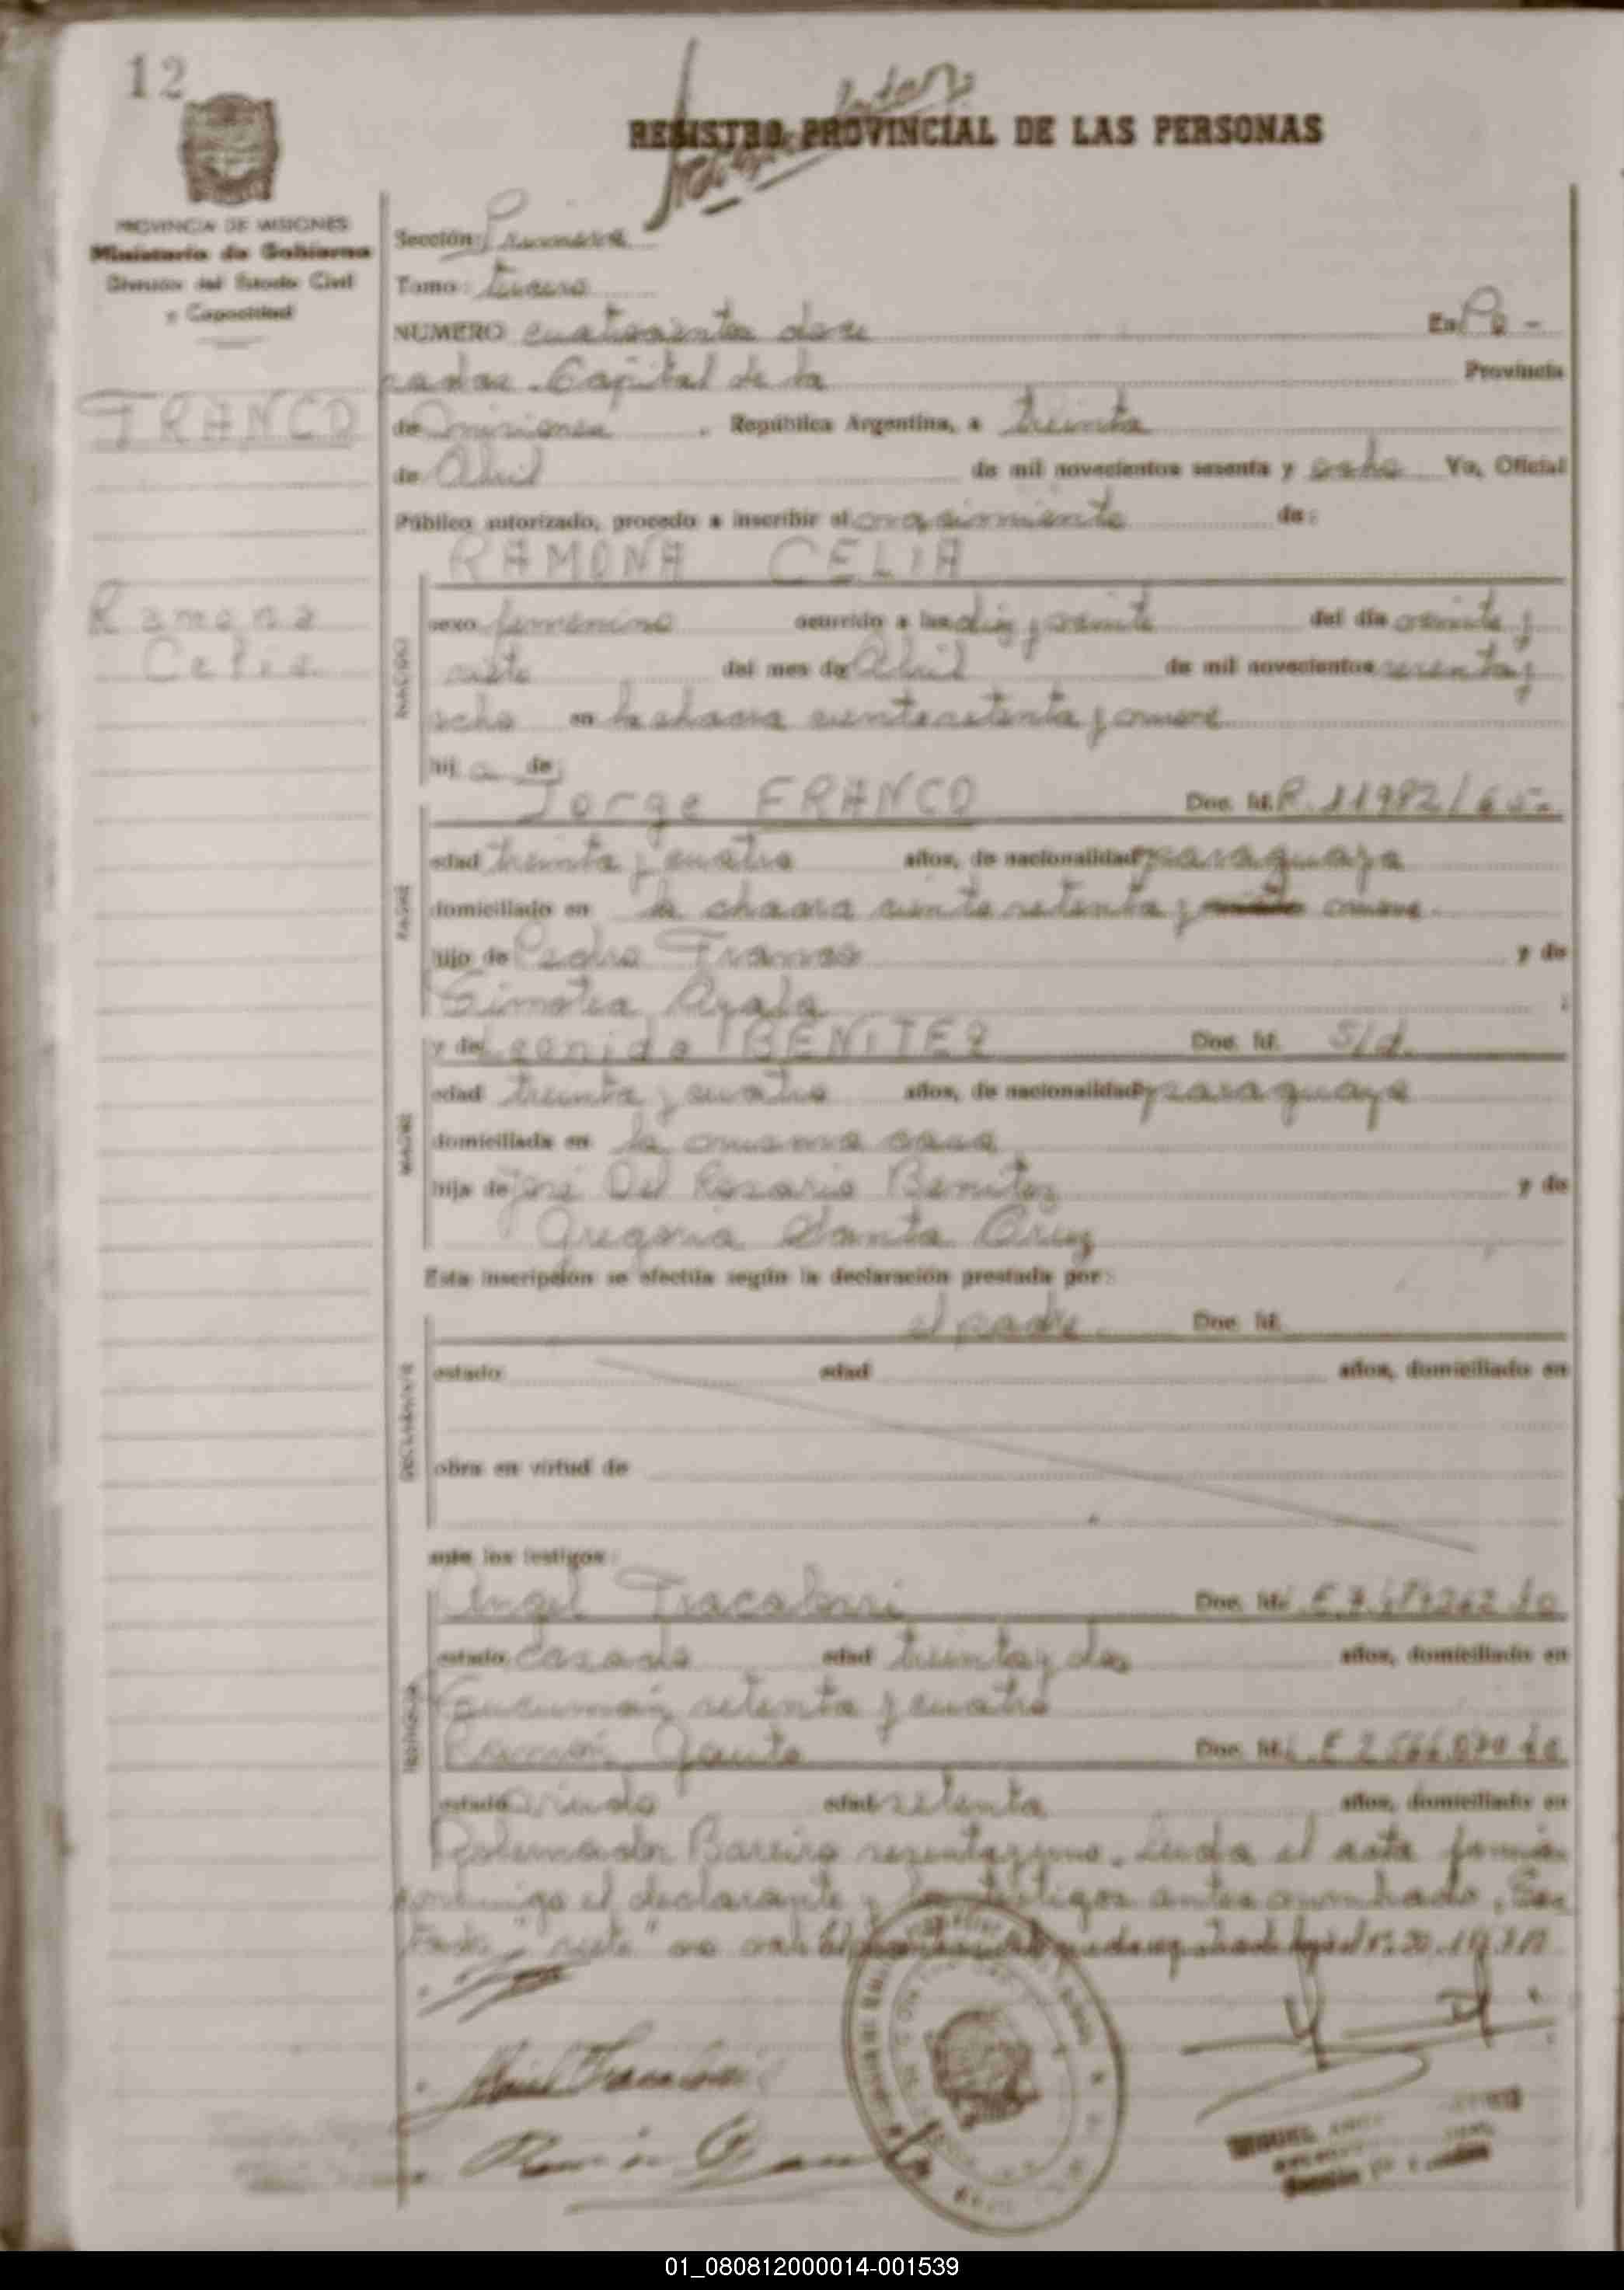 12
REGISTRO PROVINCIAL DE LAS PERSONAS
PROVINCIA DE MISIONES
Ministerio de Gobierno
División del Estado Civil
y Capacidad
FRANCO
Ramona
Celia
Sección: Primera
Tomo: tercero
NUMERO cuatrocientos doce En Po-
sadas. Capital de la Provincia
de Misiones, República Argentina, a treinta
de Abril de mil novecientos sesenta y ocho Yo, Oficial
Público autorizado, procedo a inscribir el nacimiento de:
RAMONA CELIA
NACIDO
sexo femenino ocurrido a las diez y veinte del día veinte y
siete del mes de Abril de mil novecientos sesenta y
ocho en la chacra ciento setenta y nueve
hija de:
Jorge FRANCO Doc. Id. R. 11982/65.-
PADRE
edad treinta y cuatro años, de nacionalidad paraguaya
domiciliado en la chacra ciento setenta y siete nueve.
hijo de Pedro Franco y de
Timotea Ayala
y de Leonida BENITEZ Doc. Id. S/d.
MADRE
edad treinta y cuatro años, de nacionalidad paraguaya
domiciliada en la misma casa
hija de José Del Rosario Benitez y de
Gregoria Santa Cruz
Esta inscripción se efectúa según la declaración prestada por:
el padre. Doc. Id.
DECLARANTE
estado edad años, domiciliado en
obra en virtud de
ante los testigos:
Angel Doc. Id.
TESTIGOS
estado casado edad treinta y dos años, domiciliado en
Tucumán setenta y cuatro
Ramón Doc. Id.
estado viudo edad setenta años, domiciliado en
Gobernador Barreiro sesenta y uno. Leida el acta firman
conmigo el declarante y los testigos antes nombrado.
"siete" no vale
01_080812000014-001539